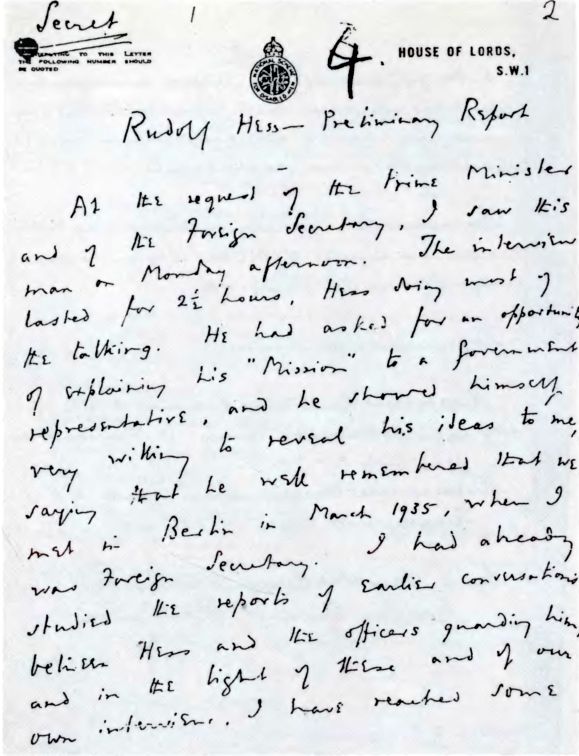 Secret
1
2
IN REPLYING TO THIS LETTER
THE FOLLOWING NUMBER SHOULD
BE QUOTED
4.
HOUSE OF LORDS,
S.W.1
Rudolf Hess – Preliminary Report
At the request of the Prime Minister
and of the Foreign Secretary, I saw this
man on Monday afternoon. The interview
lasted for 2½ hours, Hess doing most of
the talking. He had asked for an opportunity
of explaining his "Mission" to a Government
representative, and he showed himself
very willing to reveal his ideas to me,
saying that he well remembered that we
met in Berlin in March 1935, when I
was Foreign Secretary. I had already
studied the reports of earlier conversations
between Hess and the officers guarding him,
and in the light of these and of our
own interview, I have reached some